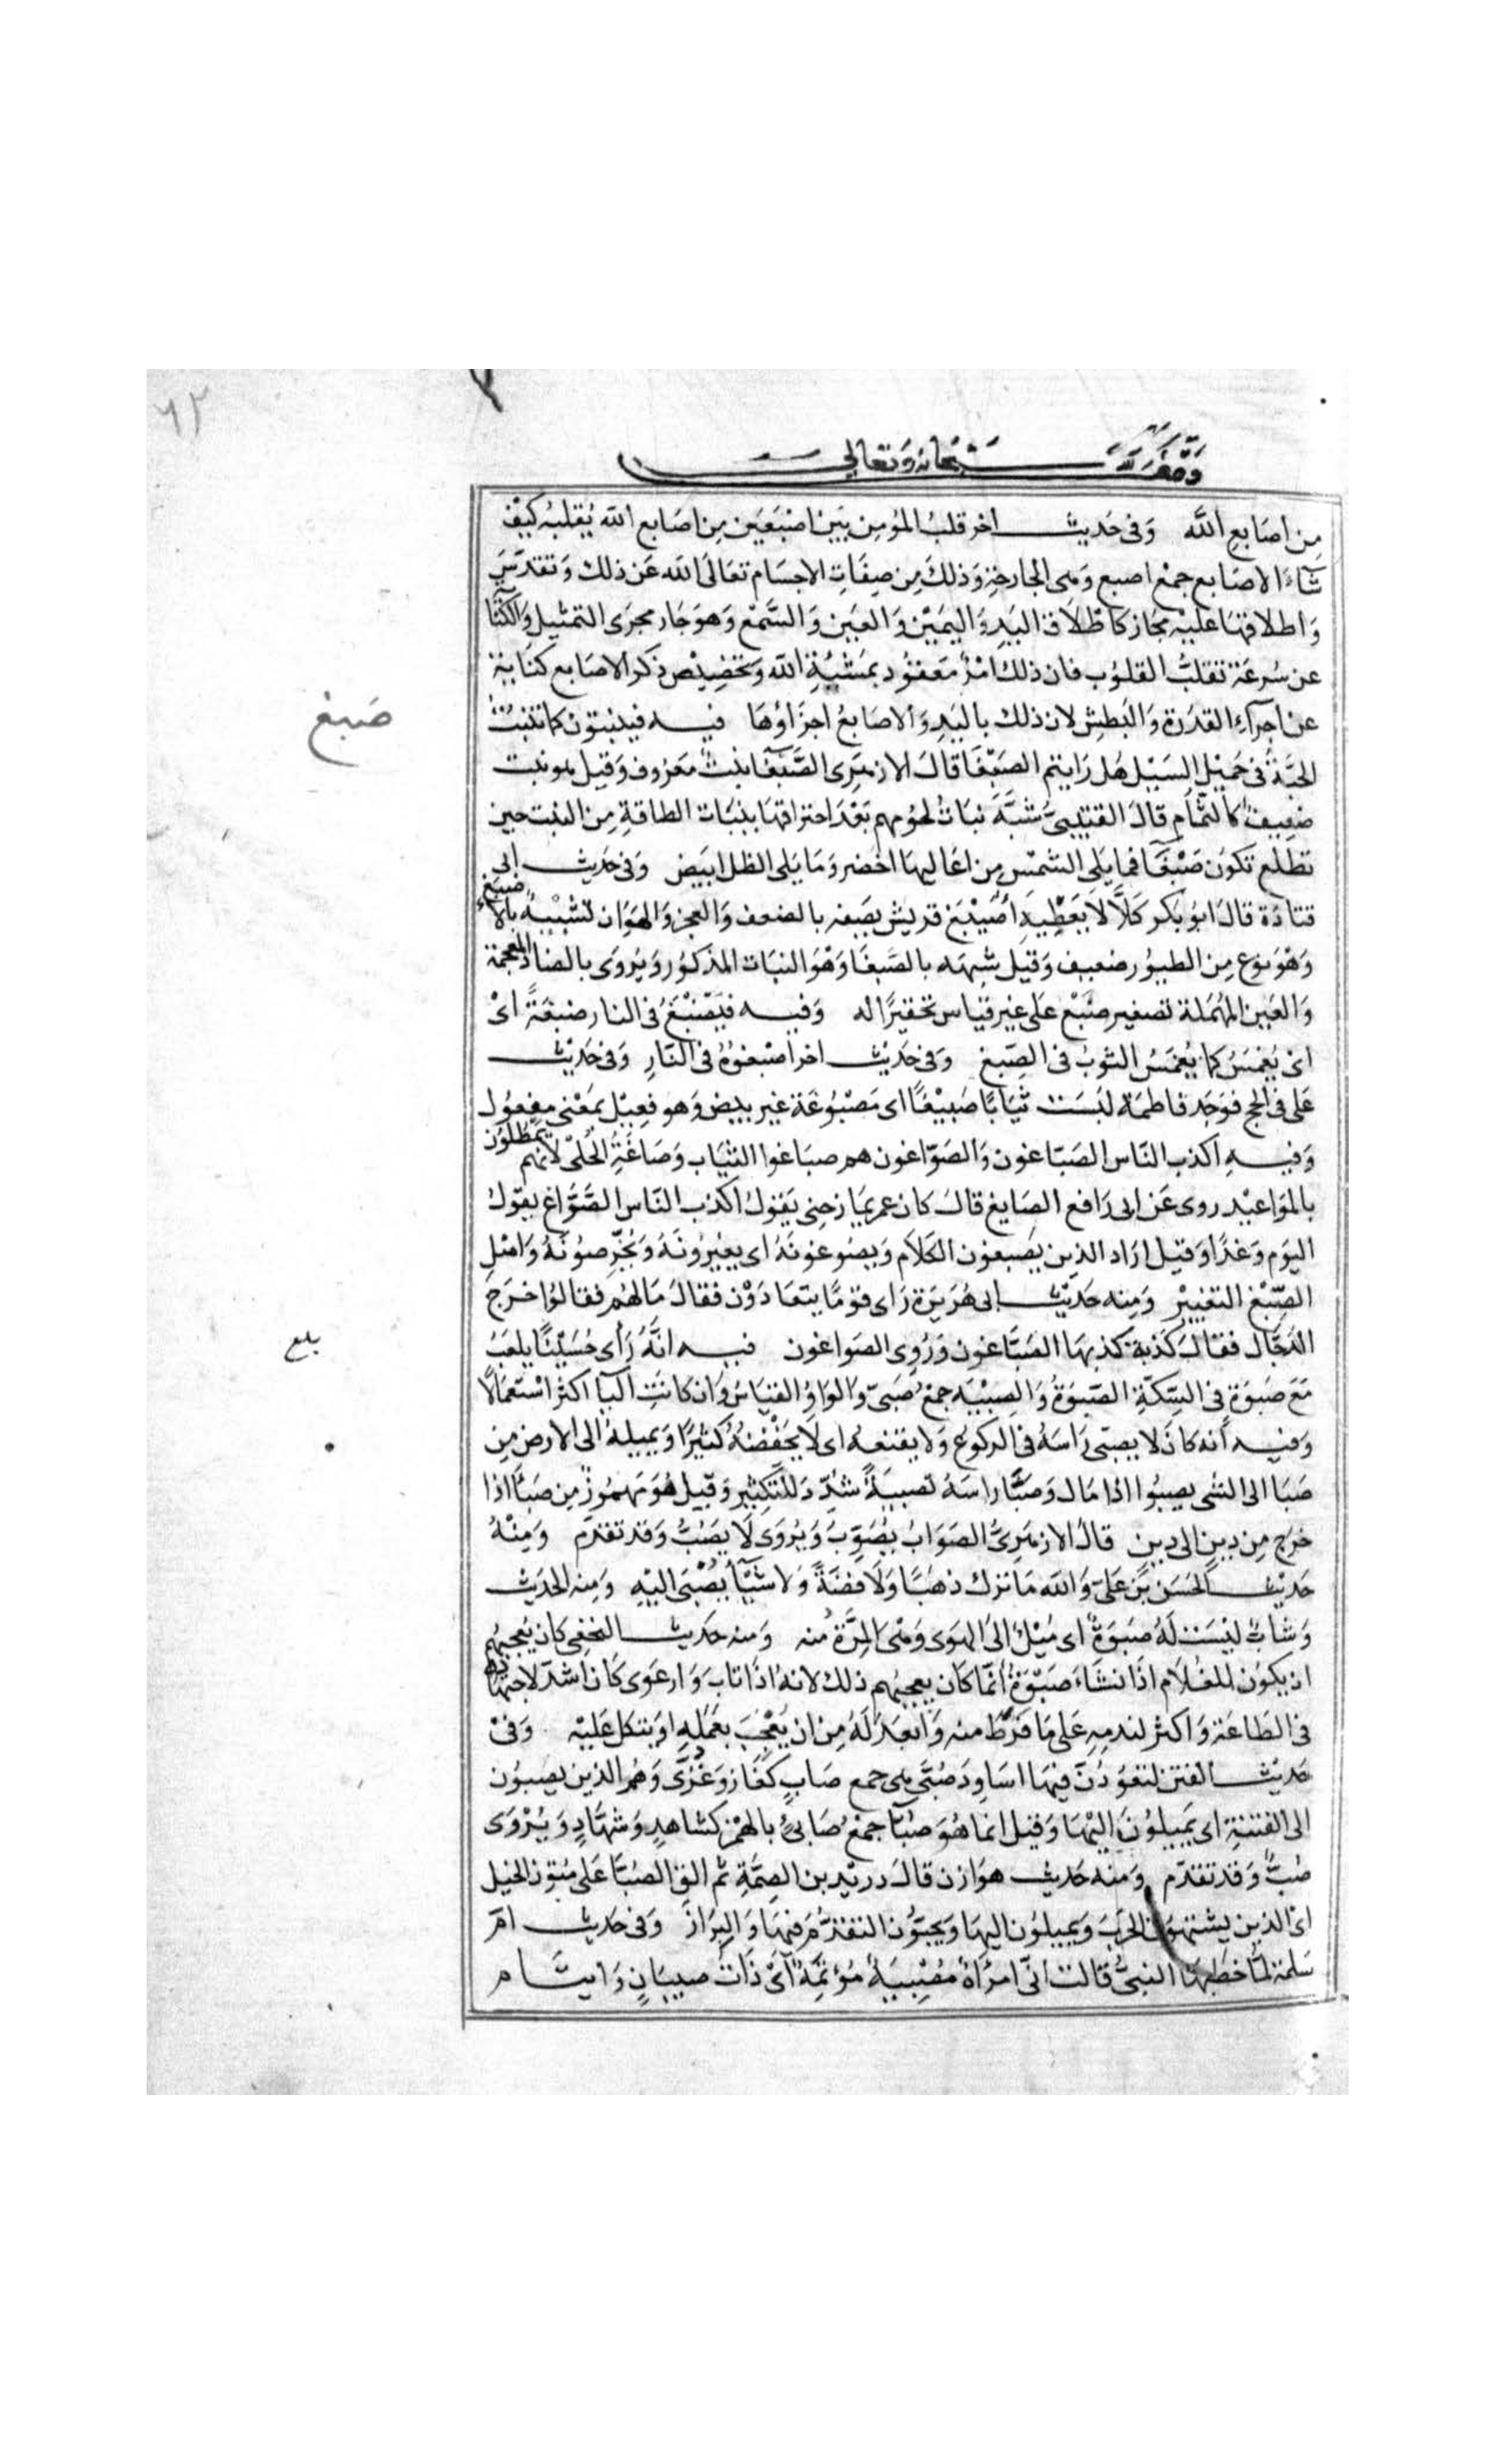 ٦٢
وقف لله سبحانه وتعالى
مِن اصَابعِ الله وَفى حَديث اخر قلبُ المؤمِن بَين اصْبَعَين مِن اصَابع الله يُقلبهُ كيْف
شآءَ الاصَابع جمْع اصبع وَهى الجارحَة وَذلكَ مِن صِفَاتِ الاجسَام تعَالى الله عَن ذلك وَتقدّسَ
وَاطلاقهَا عليْه مجَاز كاطْلاَق اليَد وَاليَميْن وَالعَين وَالسَّمْع وَهوَ جَار مجرَى التمثيل وَالكنَا
عن سُرعَة تقلبُّ القلوُب فان ذلك امْرٌ مَعقوُد بمَشيّةِ الله وَتخصِيْص ذكر الاصَابع كنَايَة
عن اجرآءِ القدرَة وَالبَطش لان ذلك باليَد وَالاصَابعُ اجزَاؤُهَا فيه فيَنبتون كما تنبُتُ
صَبغ
الحبّةُ فى حَميْل السَيْل هَل رَايتم الصَبْغَا قالَ الازهَرِى الصَّبغآ نبْتٌ مَعرُوف وَقيل هو نبت
ضعيفٌ كالثمَام قالَ القتيبىّ شبَّهَ نبَاتُ لحُومِهم بَعْدَ احتراقهَا بنبَات الطاقةِ مِن النبت حين
تطلع تكوُن صَبْغَآ فما يَلى الشمسَ مِن اعَاليهَا اخضر وَمَا يَلى الظل ابيَض وَفى حَديث ابى
قتادَة قالَ ابوُ بَكر كلاَّ لاَ يَعْطِيهِ اُصَيْبغ قريش يصَفه بالضعف وَالعجز وَالهوَان تشبيْهُ بالاصبغ
وَهْوَ نوْع مِن الطيُور ضعيف وَقيْل شبهَه بالصَّبغا وَهْوَ النبَات المذكوُر وَيُروَى بالضاد المعجمة
وَالعَين المُهْمَلة تصغير ضبْع عَلى غير قياس تحقيرًا له وَفيه فيُصْبَغ فى النار صَبغةً اىْ
اى يُغمَسُ كما يُغمَسُ الثوبُ فى الصِبغ وَفى حَديْث اخر اصبغوُهُ فى النّار وَفى حَديْث
على فى الحج فوَجَد فاطمَة لبسَت ثيَابًا صَبيْغًا اى مَصْبُوغَة غير بيض وَهو فعِيْل بمَعْنى مفعُول
وَفيهِ اكذب النّاس الصَبّاغون وَالصَوّاغون هم صبّاغوا الثيَاب وَصَاغَةُ الحُلىّ لانهم يمطلون
بالموَاعيْد روى عَن ابى رَافع الصَايغ قالَ كان عمر يمَازحنى يَقول اكذب النّاس الصَّوَّاغ يقوْل
اليوَم وَغدًا وَقيل ارَاد الذين يصبغون الكلاَم وَيصُوغونَهُ اى يغيرُونهُ وَيُخرّصونَهُ وَاصْل
الصِّبْغ التغيير وَمِنه حَديْث ابى هُرَيرَة رَاى قوْمًا يتعَادَوْن فقالَ مَالهُم فقالوُا خَرَجَ
الدَجّال فقالَ كذبة كذبهَا الصَبَّاغون وَرُوِى الصَواغون فيه انَّهُ رَأى حُسَيْنًا يلعَبُ
بلغ
مَعَ صَبوَةٍ فى السِكّةِ الصَبوَةُ وَالصِبْيَه جمْع صَبىّ وَالوَاوُ القيَاسُ وَان كانَتِ اليآ اكثرَ اسْتعمَالاً
وَفيه أنه كانَ لا يصبّى رَاسَهُ فى الركوع وَلا يقنعه اى لاَ يَخفْضهُ كثيرًا وَيميلهُ الى الارض مِن
صَبَا الى الشى يصبُوا اذا مَال وَصَبّا رَاسَهُ تصبيَةً شدّد للتكثير وَقيل هُوَ مَهموُزٌ مِن صَبَأ اذا
خَرَجَ مِن دِين الى دِين قالَ الازهَرِىُّ الصَوَابُ يُصَوّبُ وَيُروَى لاَ يصَبُّ وَقد تقدّم وَمِنْهُ
حَديْث الحَسَن بْن عَلىّ وَالله مَا ترك ذهَبًا وَلاَ فضةً وَلا شيْأً يُصْبَى اليْهِ وَمِنه الحَديث
وَشابٌّ ليْسَت لَهُ صَبوَةٌ اى مَيْلٌ الى الهوَى وَهْى المَرَّة مُنه وَمنه حَديث النخعى كان يُعجبهُم
ان يكوُن للغُلاَم اذَا نشَاءَ صَبْوَةٌ انّمَا كان يعجبُهم ذلك لانهُ اذَا تابَ وَارعَوى كان اشدّ لاجتهاده
فى الطاعَة وَاكثر لندمِهِ عَلى مَا فرَّط منه وَابعَدَ لَهُ مِن ان يُعْجَبَ بعَمَلِهِ او يتكل عَليْه وَفىْ
حَديْث الفتن لتعوُدُنَّ فيهَا اسَاوِدَ صُبَّى هى جمع صَابٍ كغَاز وَغُزّى وَهُم الذين يصبُون
الى الفتنةِ اى يَميلوُنَ اليْهَا وَقيل انمَا هُوَ صُبّآ جمْعُ صَابئٍ بالهمْز كشاهِدٍ وَشُهَّادٍ وَيُرْوَى
صُبٌّ وَقد تقدّم وَمنه حَديث هوَازن قالَ دريد بن الصِمَّةِ ثم الق الصُبَّا عَلى مُتوُن الخيل
اىْ الذين يشتهوُن الحَرْبَ وَيميلوُن اليهَا وَيُحبّوُن التقدُّمَ فيهَا وَالبرَازَ وَفى حَديث امّ
سَلمة لمّا خطبهَا النبىُّ قالت انّى امرَاةٌ مُصْبِيَةٌ مُوُتِمَةٌ اىْ ذَاتُ صِبيَانٍ وَايتَام